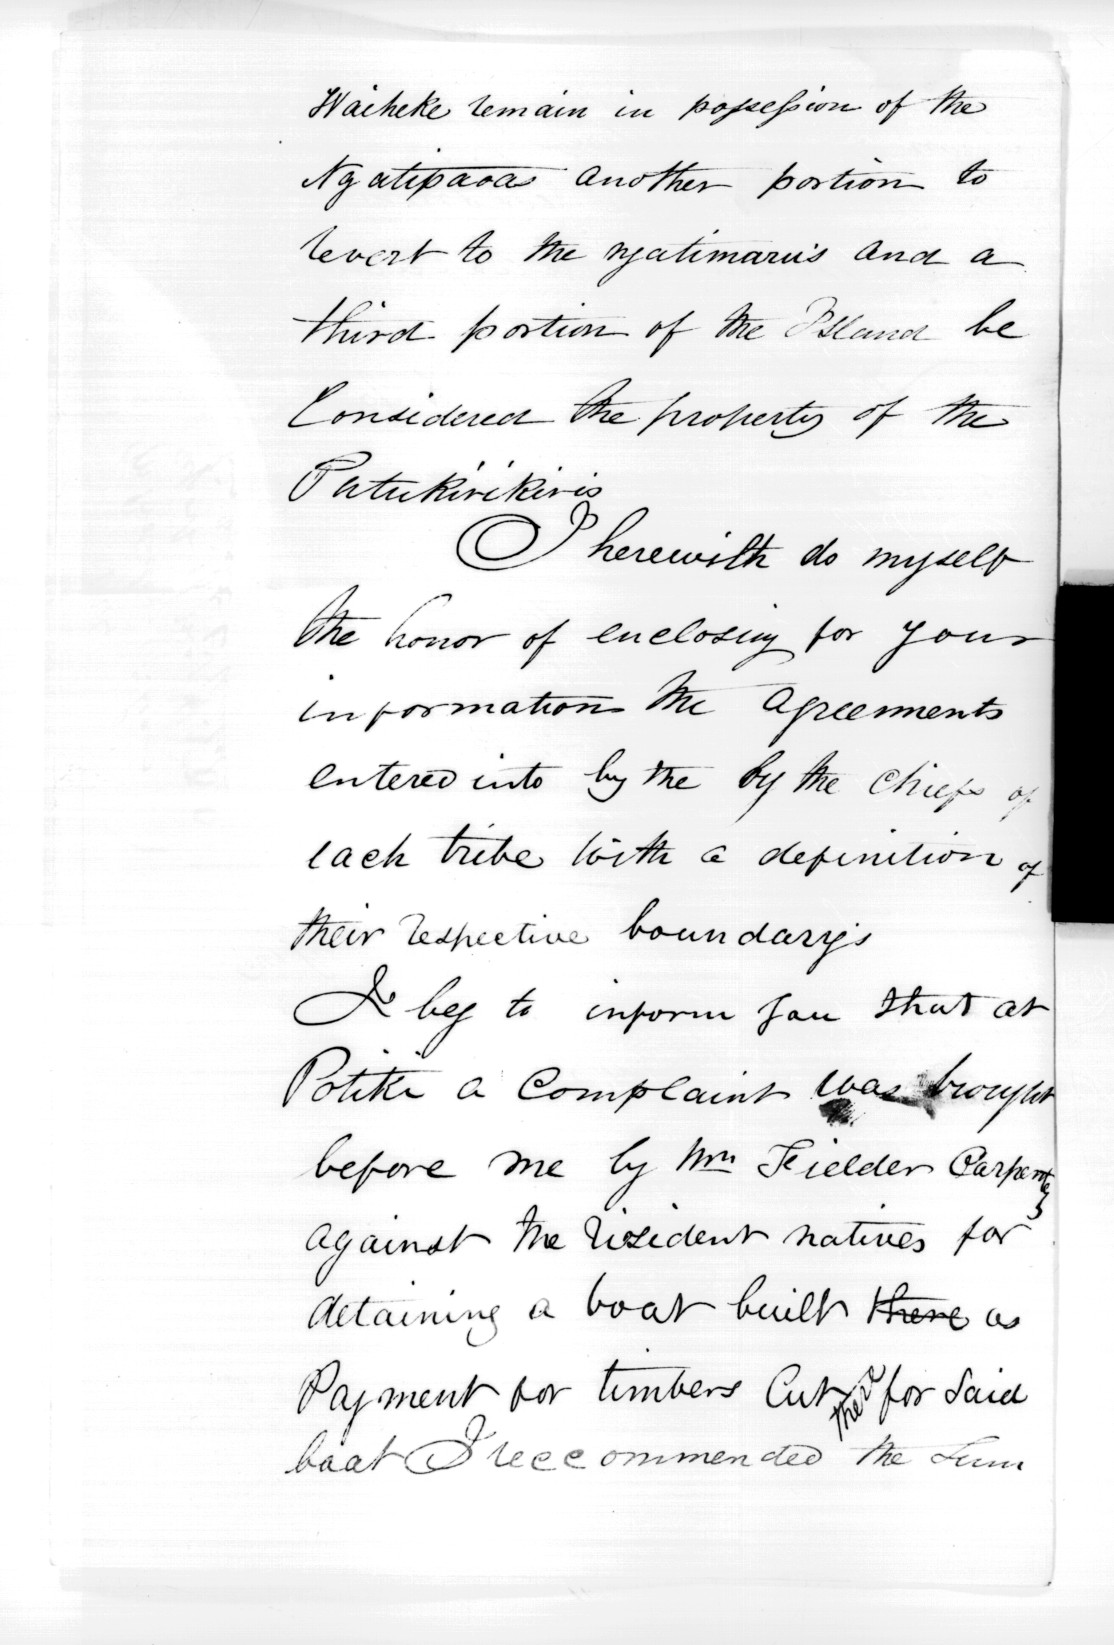 Waiheke remain in possession of the
Ngatipaoas another portion to
revert to the ngatimaru's and a
third portion of the Island be
Considered the property of the
Patukirikiris
I herewith do myself
the honor of enclosing for your
information the agreements
entered into by the by the chiefs of
each tribe with a definition of
their respective boundary's
I beg to inform you that at
Potiki a Complaint was brought
before me by Wm Fielder Carpenter
against the resident natives for
detaining a boat built there as
Payment for timbers Cut there for Said
boat I reccommended the Sum